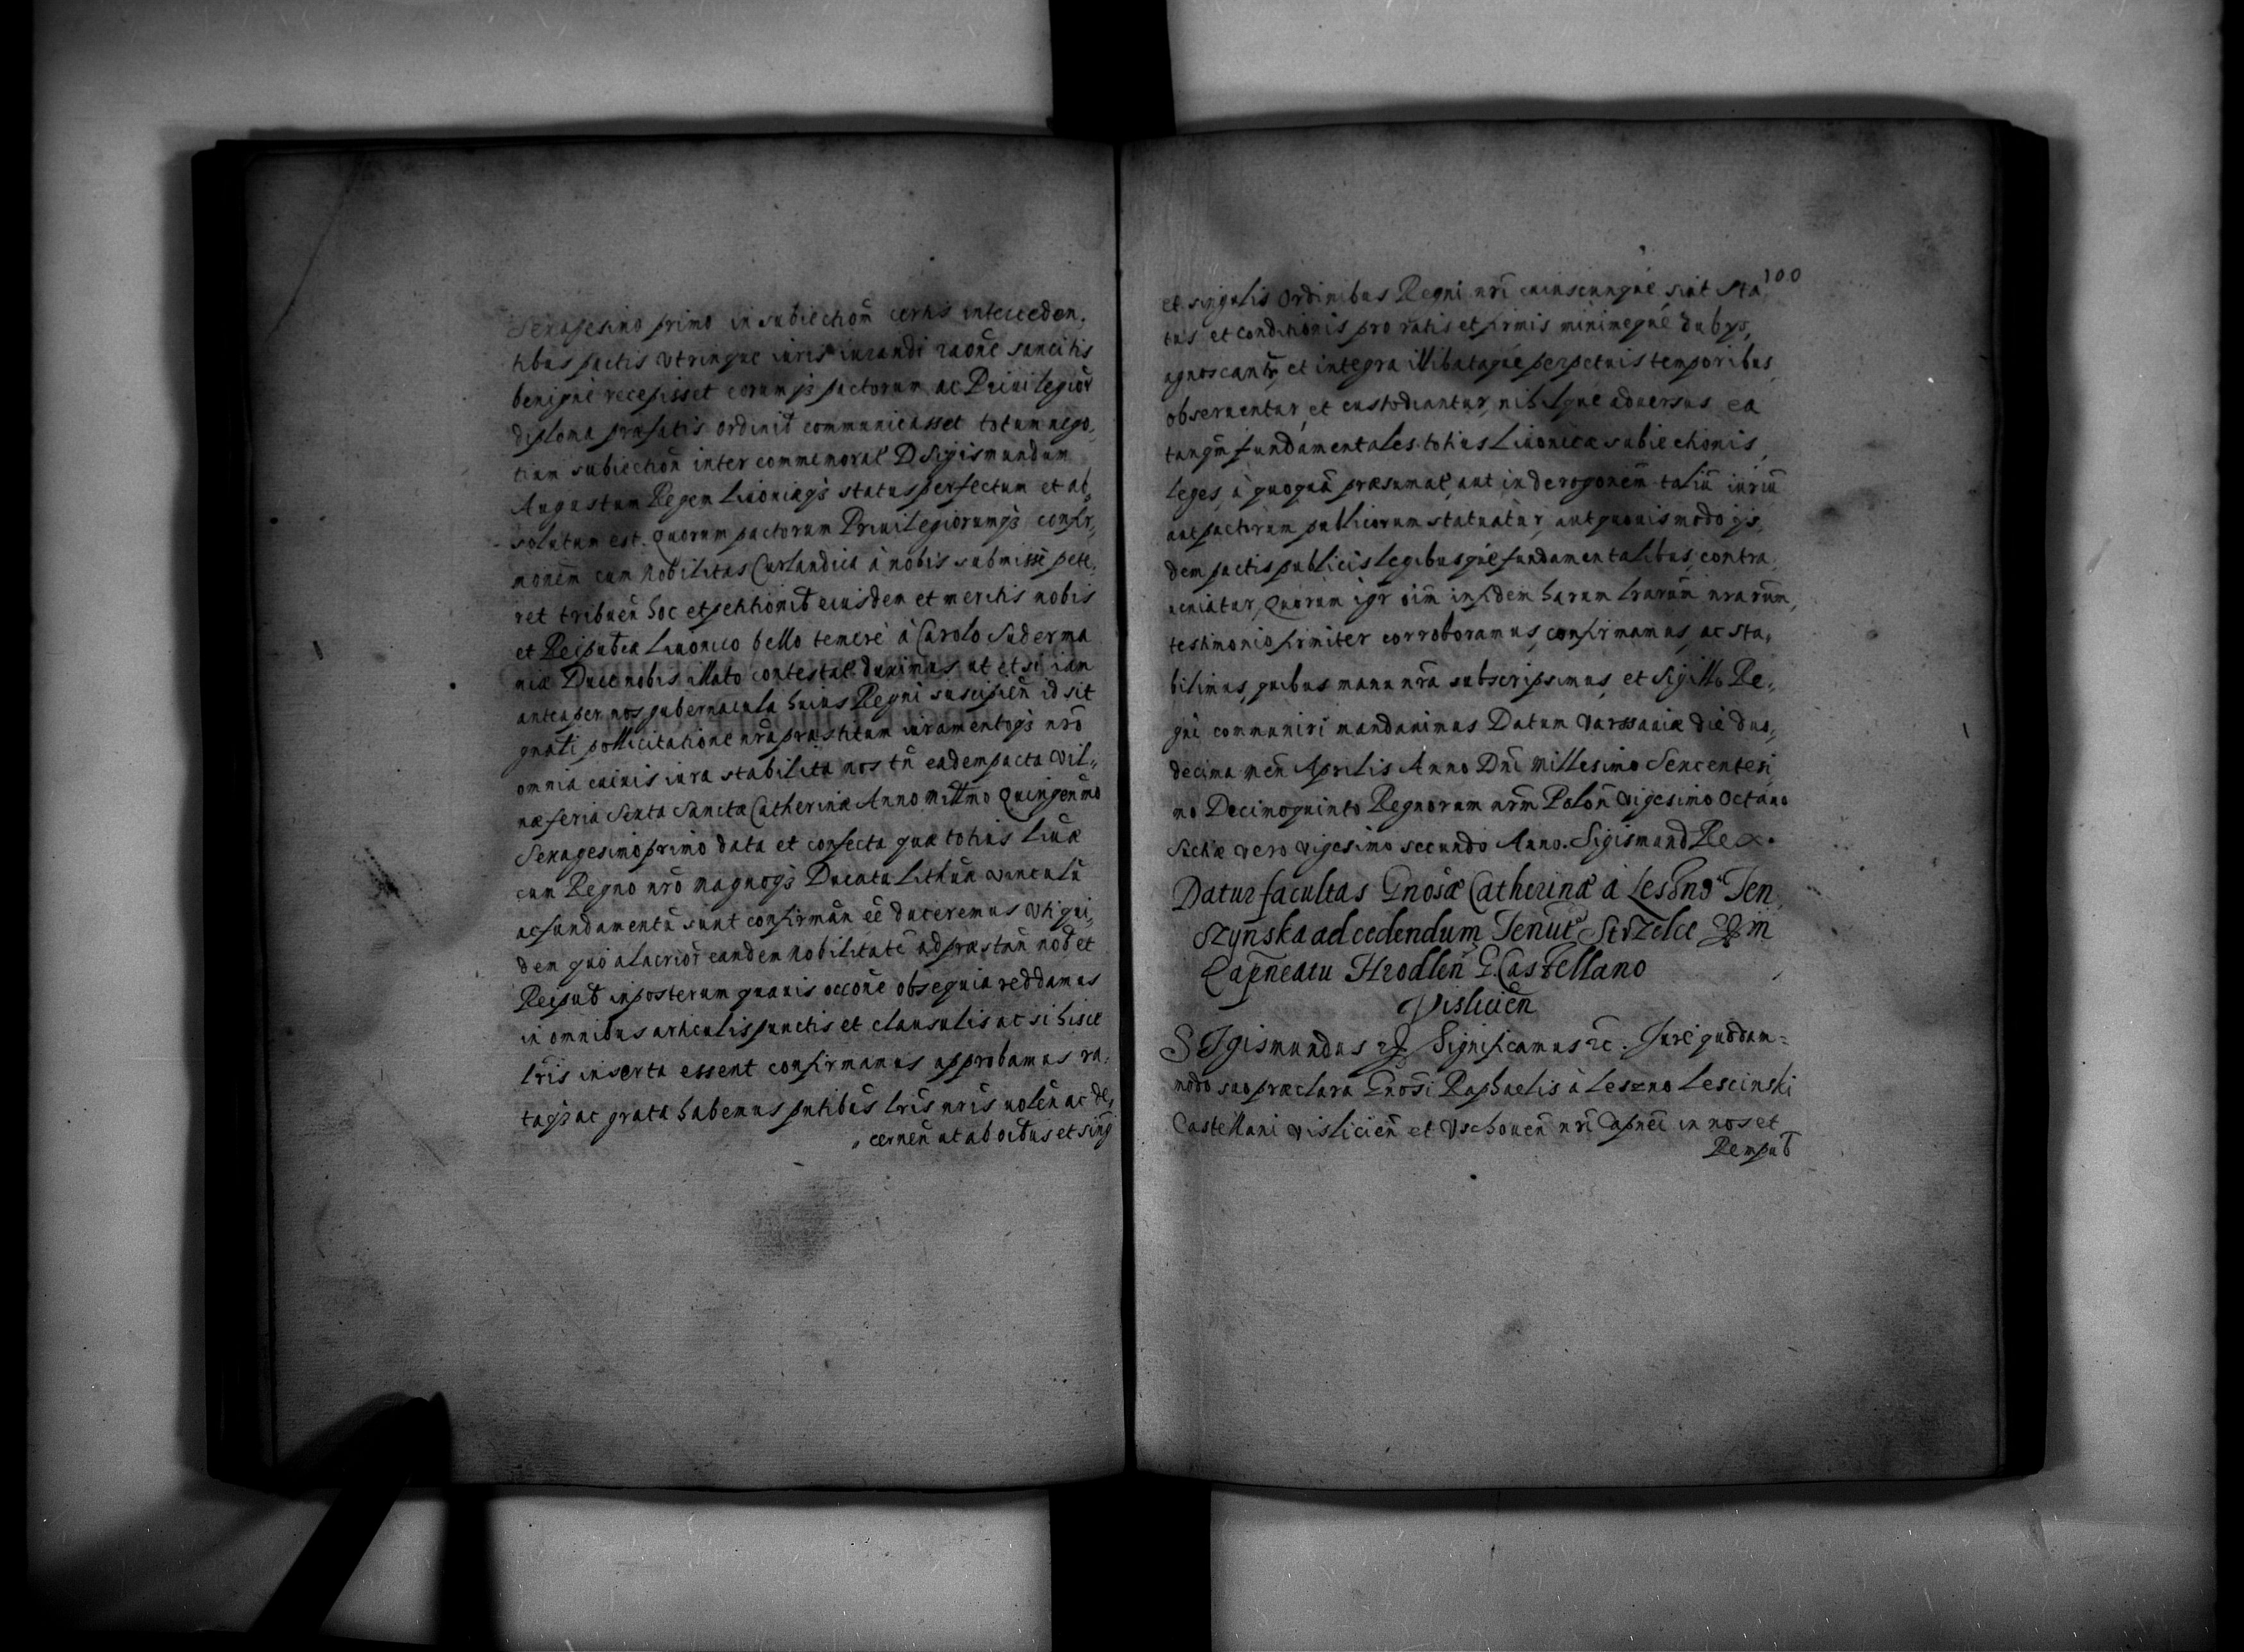 Sexagesimo primo in subiectioñ certis interceden,
tibus pactis vtrinque iuris iurandi raõne sancitis
benignè recepisset eorumqꝫ pactorum ac Priuilegiorͫ
diploma præfatis ordinib̃ communicasset totum nego,
tium subiectioñ inter commemorat̃ D Sigismundum
Augustum Regem Liuoniæqꝫ status perfectum et ab,
solutum est. Quorum pactorum Priuilegiorumqꝫ confir,
monẽm cum Nobilitas Curlandica à nobis submissè pete,
ret tribueñ hoc et petitionib̃ eiusdem et meritis nobis
et Reipub̃cæ Liuonico bello temerè à Carolo Suderma
niæ Duce nobis illato contestat̃ duximus ut et si iam
antea per nos gubernacula huius Regni suscipieñ id sit
gnati pollicitatione nr̃a præstitum iuramentoqꝫ nr̃o
omnia cuiuis iura stabilita nos tñ eadem pacta Vil,,
næ feria Sexta Sanctæ Catherinæ Anno Mill̃mo Quingeñmo
Sexagesimo primo data et confecta quæ totius Liũæ
cum Regno nr̃o Magnoqꝫ Ducatu Lithũa vinculũ
ac fundamentũ sunt confirmãn eẽ duceremus Vti qui,
dem quò alacrior̃ eandem Nobilitatẽ ad præstãn nob̃ et
Reipub̃ inposterum quauis occõne obsequia reddamus
in omnibus articulis punctis et clausulis ac si hisce
l̃ris inserta essent confirmamus approbamus ra,
taqꝫ ac grata habemus pñtibus l̃ris nr̃is uoleñ ac de,
cerneñ ut ab oĩbus et sing̃
100
et singulis Ordinibus Regni nr̃i cuiuscunque sint sta,
tus et conditionis pro ratis et firmis minimeque dubys,
agnoscantr̃, et integra illibataque perpetuis temporibus,
obseruentur, et custodiantur, nihilque aduersus ea
tanqm̃ fundamentales totius Liuonicæ subiectionis,
leges, à quoquã præsumat̃, aut in derogonẽm taliũ iuriũ
aut pactorum publicorum statuatur, aut quouis modo ijs,
dem pactis publicis legibusque fundamentalibus, contra,
ueniatur, Quorum igr̃ oĩm in fidem harum l̃rarum nr̃arum,
testimonio firmiter corroboramus, confirmamus, ac sta,
bilimus, quibus manu nr̃a subscripsimus, et Sigillo Re,,
gni communiri mandauimus Datum Varssauiæ die duo,
decima Meñ Aprilis Anno Dñi Millesimo Sexcentesi
mo Decimoquinto Regnorum nr̃m Poloñ Vigesimo Octauo
Sueciæ vero vigesimo secundo Anno. Sigismund Rex.
Datur facultas Gñosæ Catherinæ à Leszno Ten,
szynska ad cedendum Tenut̃ Strzelce in
Capñeatu Hrodleñ G. Castellano
Vislicieñ
SIgismundus Significamus ꝛc. Iurè quodam=
modo suo præclara Gñosi Raphaelis à Leszno Lescinski
Castellani Vislicieñ et Vschoueñ nr̃i Capñei in nos et
Rempub̃